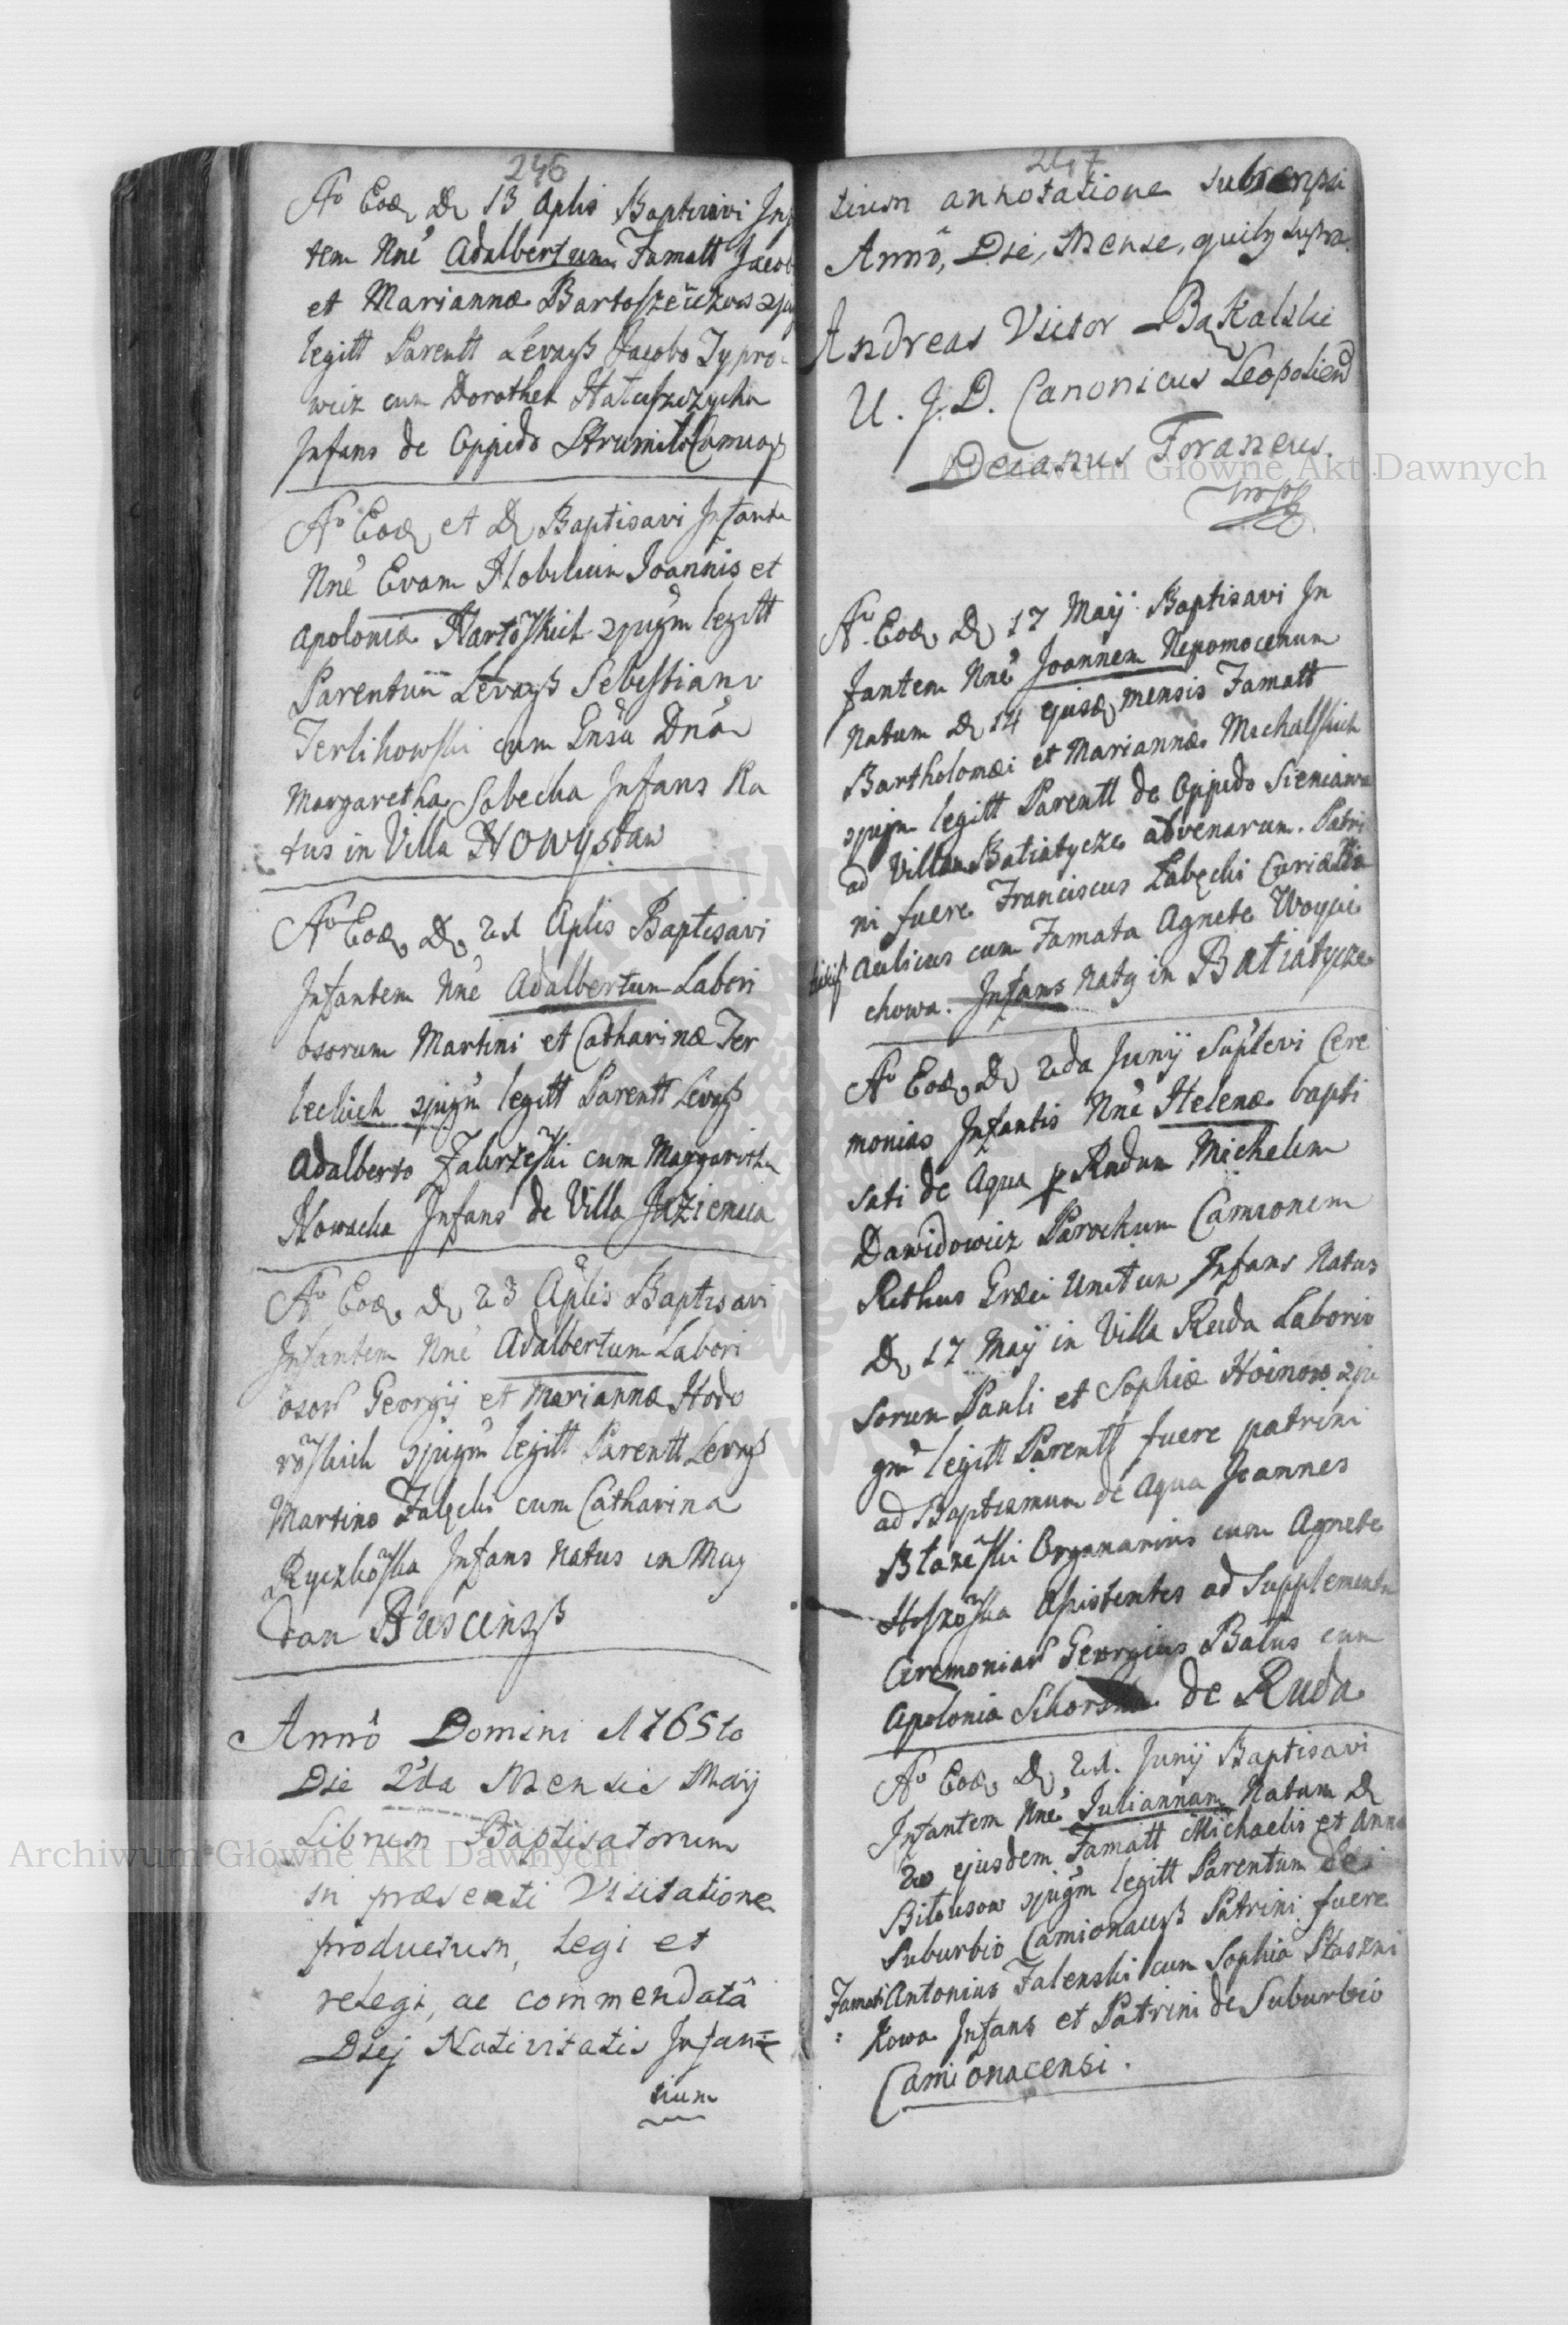 246
Aº Eod D 13 Aplis Baptisavi Inf
tem Nnē Adalbertum Famatt Jacob
et Mariannæ
legitt Parentt Levantß Jacobo Cypro
wicz cum Dorothea
Infans de Oppido
Aº Eod et D Baptisavi Infante
Nnē Evam Nobilium Joannis et
Apoloniæ legitt
Parentum Sebestiano
Terlikowski cum Gnsa Dnā
Margaretha Sobecka Infans Na
tus in Villa Nowystaw
Aº Eod D 21 Aplis Baptisavi
Infantem Nnē Adalbertum Labori
osorum Martini et Catharinæ Ter
leckich legitt Parentt
Adalberto cum Margaritha
Nowacka Infans de Villa Jazienica
Aº Eod D 23 Aplis Baptisavi
Infantem Nnē Adalbertum Labori
osoR Georgij et Mariannæ Hodo
legitt Parentt
Martino cum Catharina
Infans Natus in May
dan
Annô Domini 1765to
Die 2da Mensis Maij
Librum Baptisatorum
in præsenti Visitatione
productum, Legi et
relegi, ac commendatâ
Diej Nativitatis Infan=
tium
247
tium annotatione subscripsi
Annô, Die, Mense, quibg supra.
Andreas Victor Bakalski
U. J. D. Canonicus Leopolien
Decanus Foraneus.
mpp
Aº Eod D 17 Maij Baptisavi In
fantem Nnē Joannem Nepomocenum
Natum D 14 ejusd mensis Famatt
Bartholomæi et Mariannæ Michalskich
legitt Parentt de Oppido Sieniawa
ad Villam Batiatycze advenarum. Patri
ni fuere Franciscus Łabęcki
Aulicus cum Famata Agnete Woycie
chowa. Infans Natg in Batiatycze
Aº Eod D 2da Junij Suplevi Cere
monias Infantis Nnē Helenæ bapti
sati de Aqua p Rndum Michelem
Dawidowicz Parochum Camionem
Rithus Græci Unitum Infans Natus
D 17 Maij in Villa Ruda Laborio
sorum Pauli et Sophiæ
legitt Parentt fuere patrini
ad Baptismum de Aqua Joannes
Organarius cum Agnete
Assistentes ad Supplementu
Ceremoniar Georgius Balus cum
Apolonia de Ruda
Aº Eod D 21. Junij Baptisavi
Infantem Nnē Juliannam Natam D
20 ejusdem Famatt Michaelis et Anna
legitt Parentum de
Suburbio Patrini fuere
Famati Antonius Zalenski cum Sophia
kowa Infans et Patrini de Suburbio
Camionacensi.
Archiwum Główne Akt Dawnych
Archiwum Główne Akt Dawnych